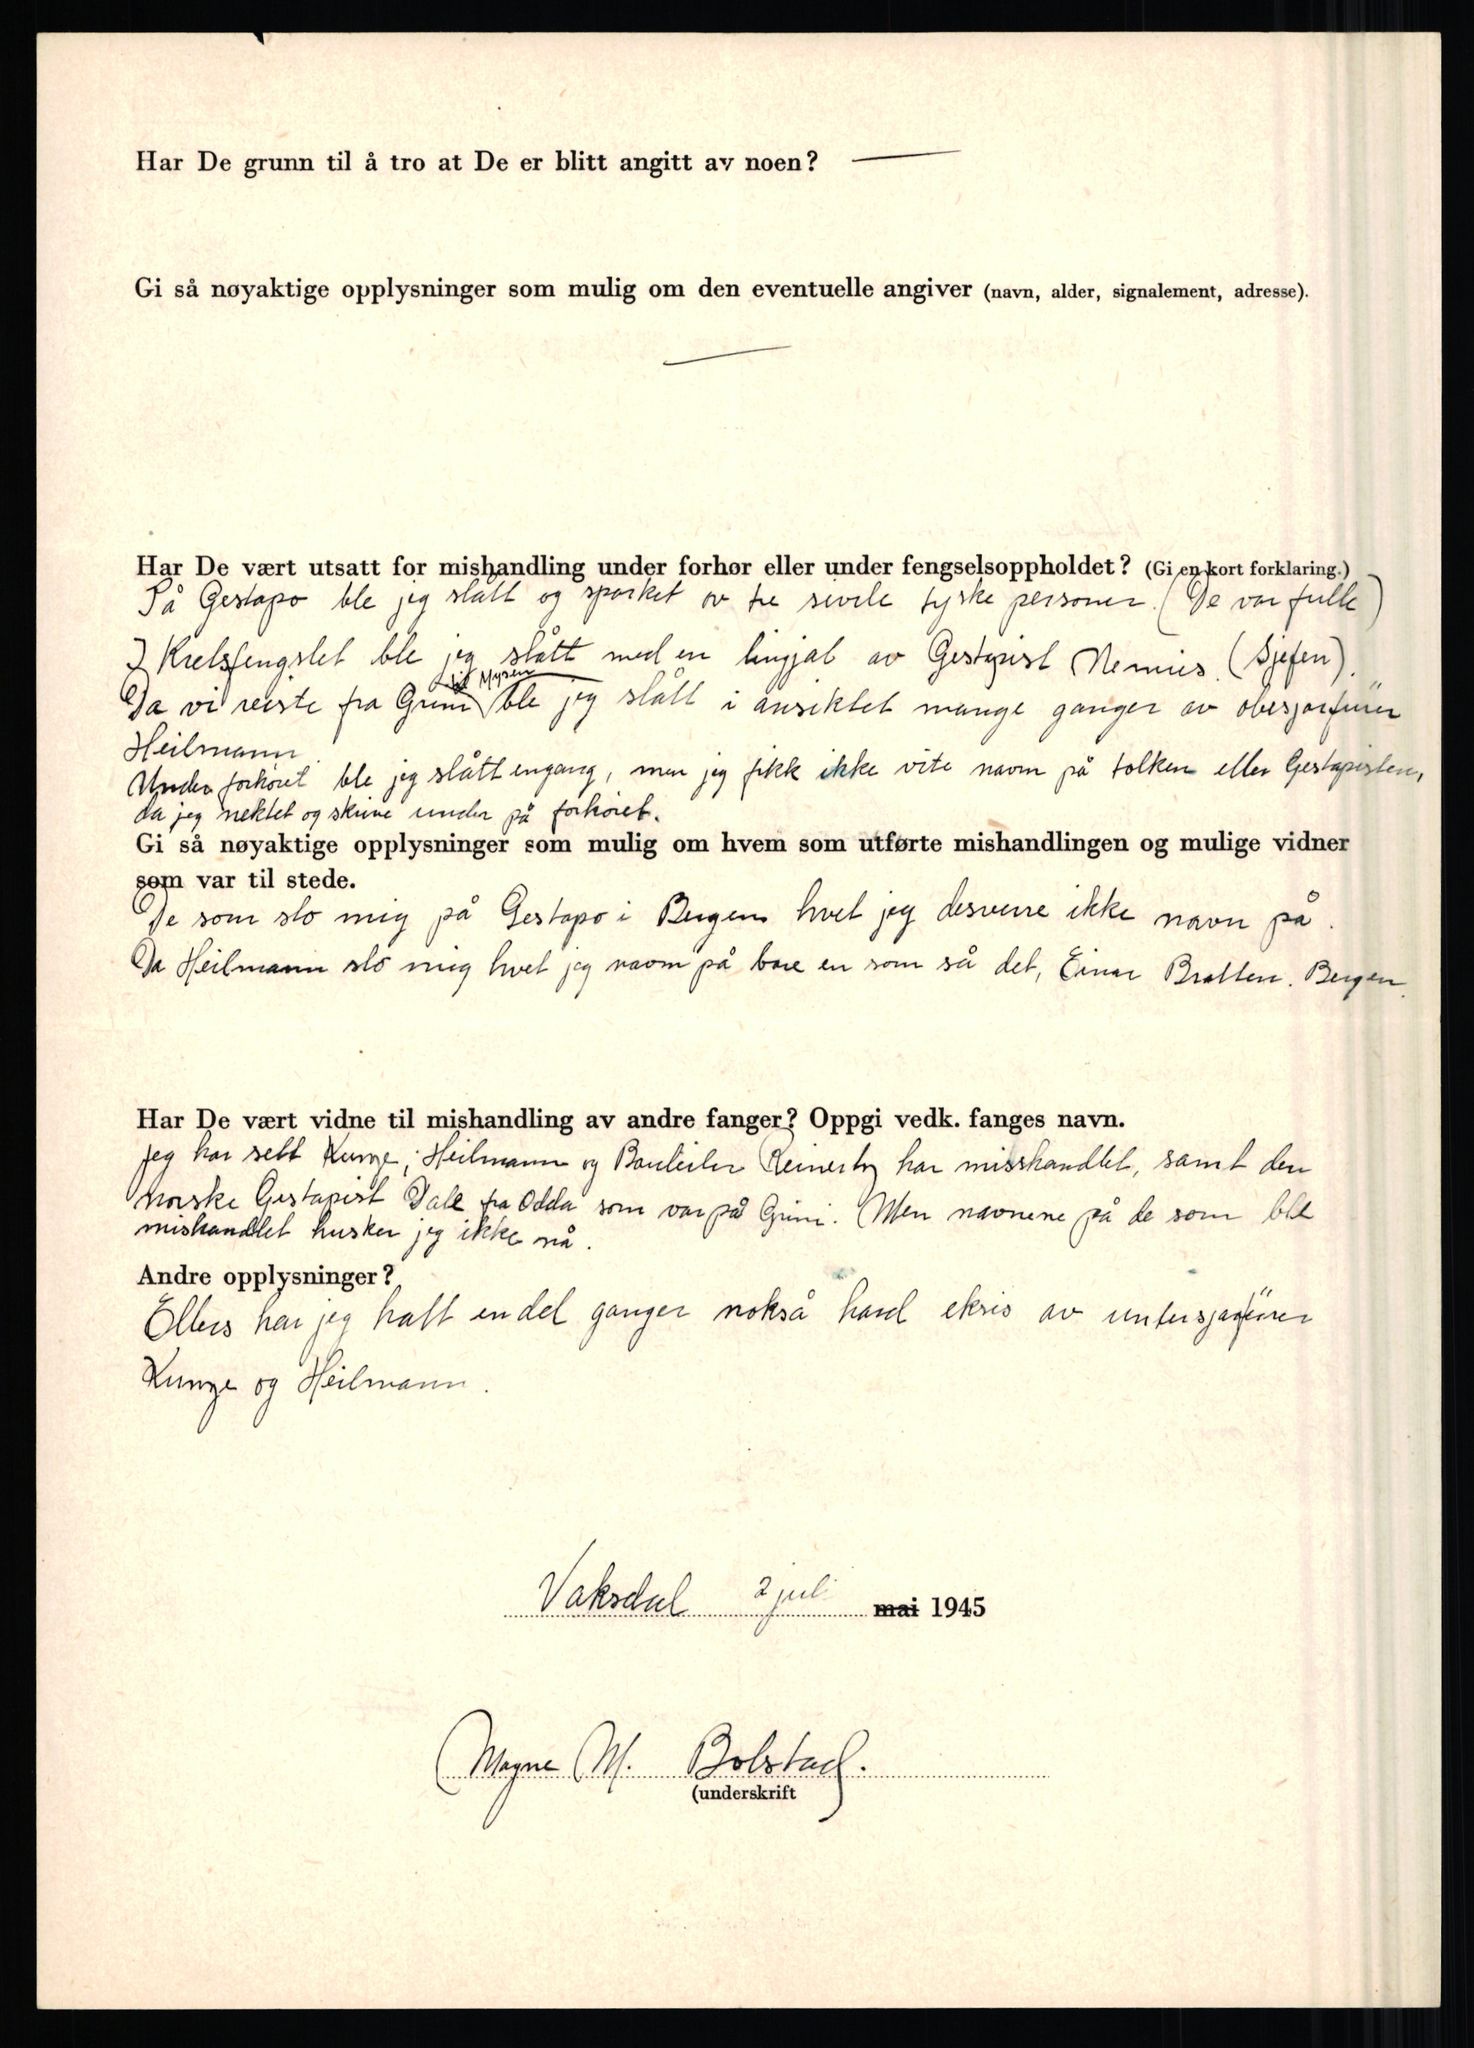 Har De grunn til å tro at De er blitt angitt av noen? —
Gi så nøyaktige opplysninger som mulig om den eventuelle angiver (navn, alder, signalement, adresse).
—
Har De vært utsatt for mishandling under forhør eller under fengselsoppholdet? (Gi en kort forklaring.)
På Gestapo ble jeg slått og sparket av tre sivile tyske personer. (De var fulle)
I Kretsfengslet ble jeg slått med en linjal av Gestapist Nemies. (Sjefen).
til Mysen
Da vi reiste fra Grini ble jeg slått i ansiktet mange ganger av obersjarfürer
Heilmann.
Under forhöret ble jeg slått engang, men jeg fikk ikke vite navn på tolken eller Gestapisten,
da jeg nektet og skrive under på forhöret.
Gi så nøyaktige opplysninger som mulig om hvem som utførte mishandlingen og mulige vidner
som var til stede.
De som slo mig på Gestapo i Bergen hvet jeg desverre ikke navn på.
Da Heilmann slo mig hvet jeg navn på bare en som så det, Einar Bratten. Bergen.
Har De vært vidne til mishandling av andre fanger? Oppgi vedk. fanges navn.
Jeg har sett Kunze, Heilmann og Bauleiler Reinertz har misshandlet, samt den
norske Gestapist Dale fra Odda som var på Grini. Men navnene på de som ble
mishandlet husker jeg ikke nå.
Andre opplysninger?
Ellers har jeg hatt en del ganger nokså hard eksis av untersjarfürer
Kunze og Heilmann.
Vaksdal 2 juli mai 1945
Magne M. Bolstad.
(underskrift